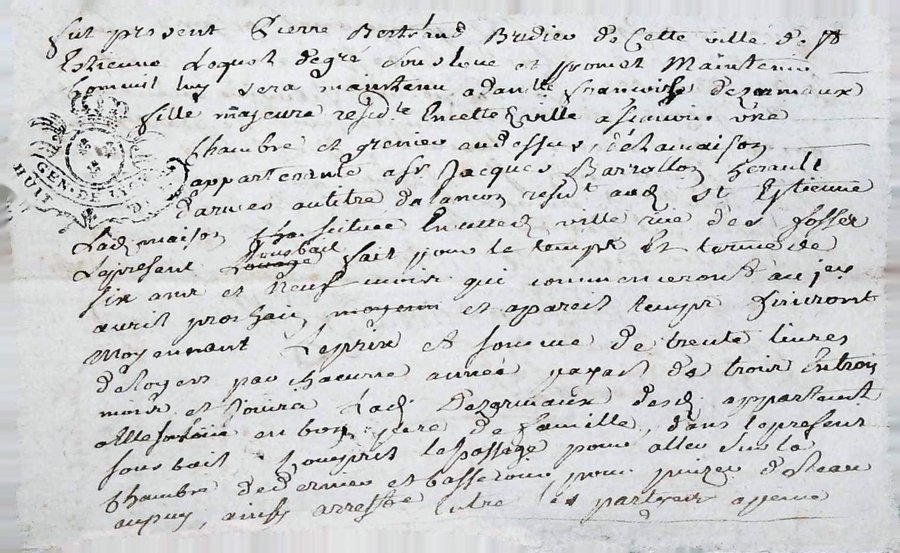 fut present Pierre Bertrand Bridieu de Cette ville de St
Estienne Lequel de gré sousloue et promet Maintenir
sera maintenu a dam.lle francoise dezormaux
fille majeure resid.te En cette ville a scavoir une
Chambre et grenier au dessus, de la maison
appartenante a Sr Jacques Barrollon herault
d'armes au titre d'alancon resid.t aud. St Estienne
Lad. maison scituée En cette d. ville rue des fosses
Le present sousbail Louage fait pour le temps Et terme de
six ans et Neuf mois qui commenceront au
avril prochain, moyenn et a pareil temps finiront
Moyennant Le prix et somme de trente livres
de loyers par chacune année payable de trois En trois
mois et Jouira Lad. Dezormaux desd. appartement
en bon pere de famille, dans le present
sousbail Compris le passage pour aller sur la
Chambre de derriere et basse cour pour puizer de leau
au puy, ainsy arresté entre les parties a peine
GEN. DE LYON
HUIT D.